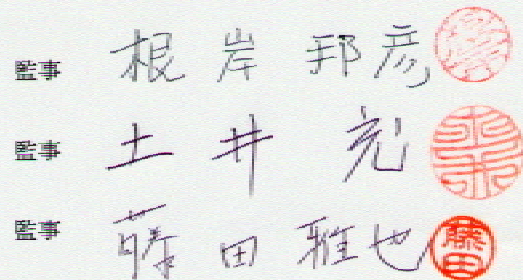 監事 根岸邦彦
監事 土井充
監事 藤田雅也 藤田